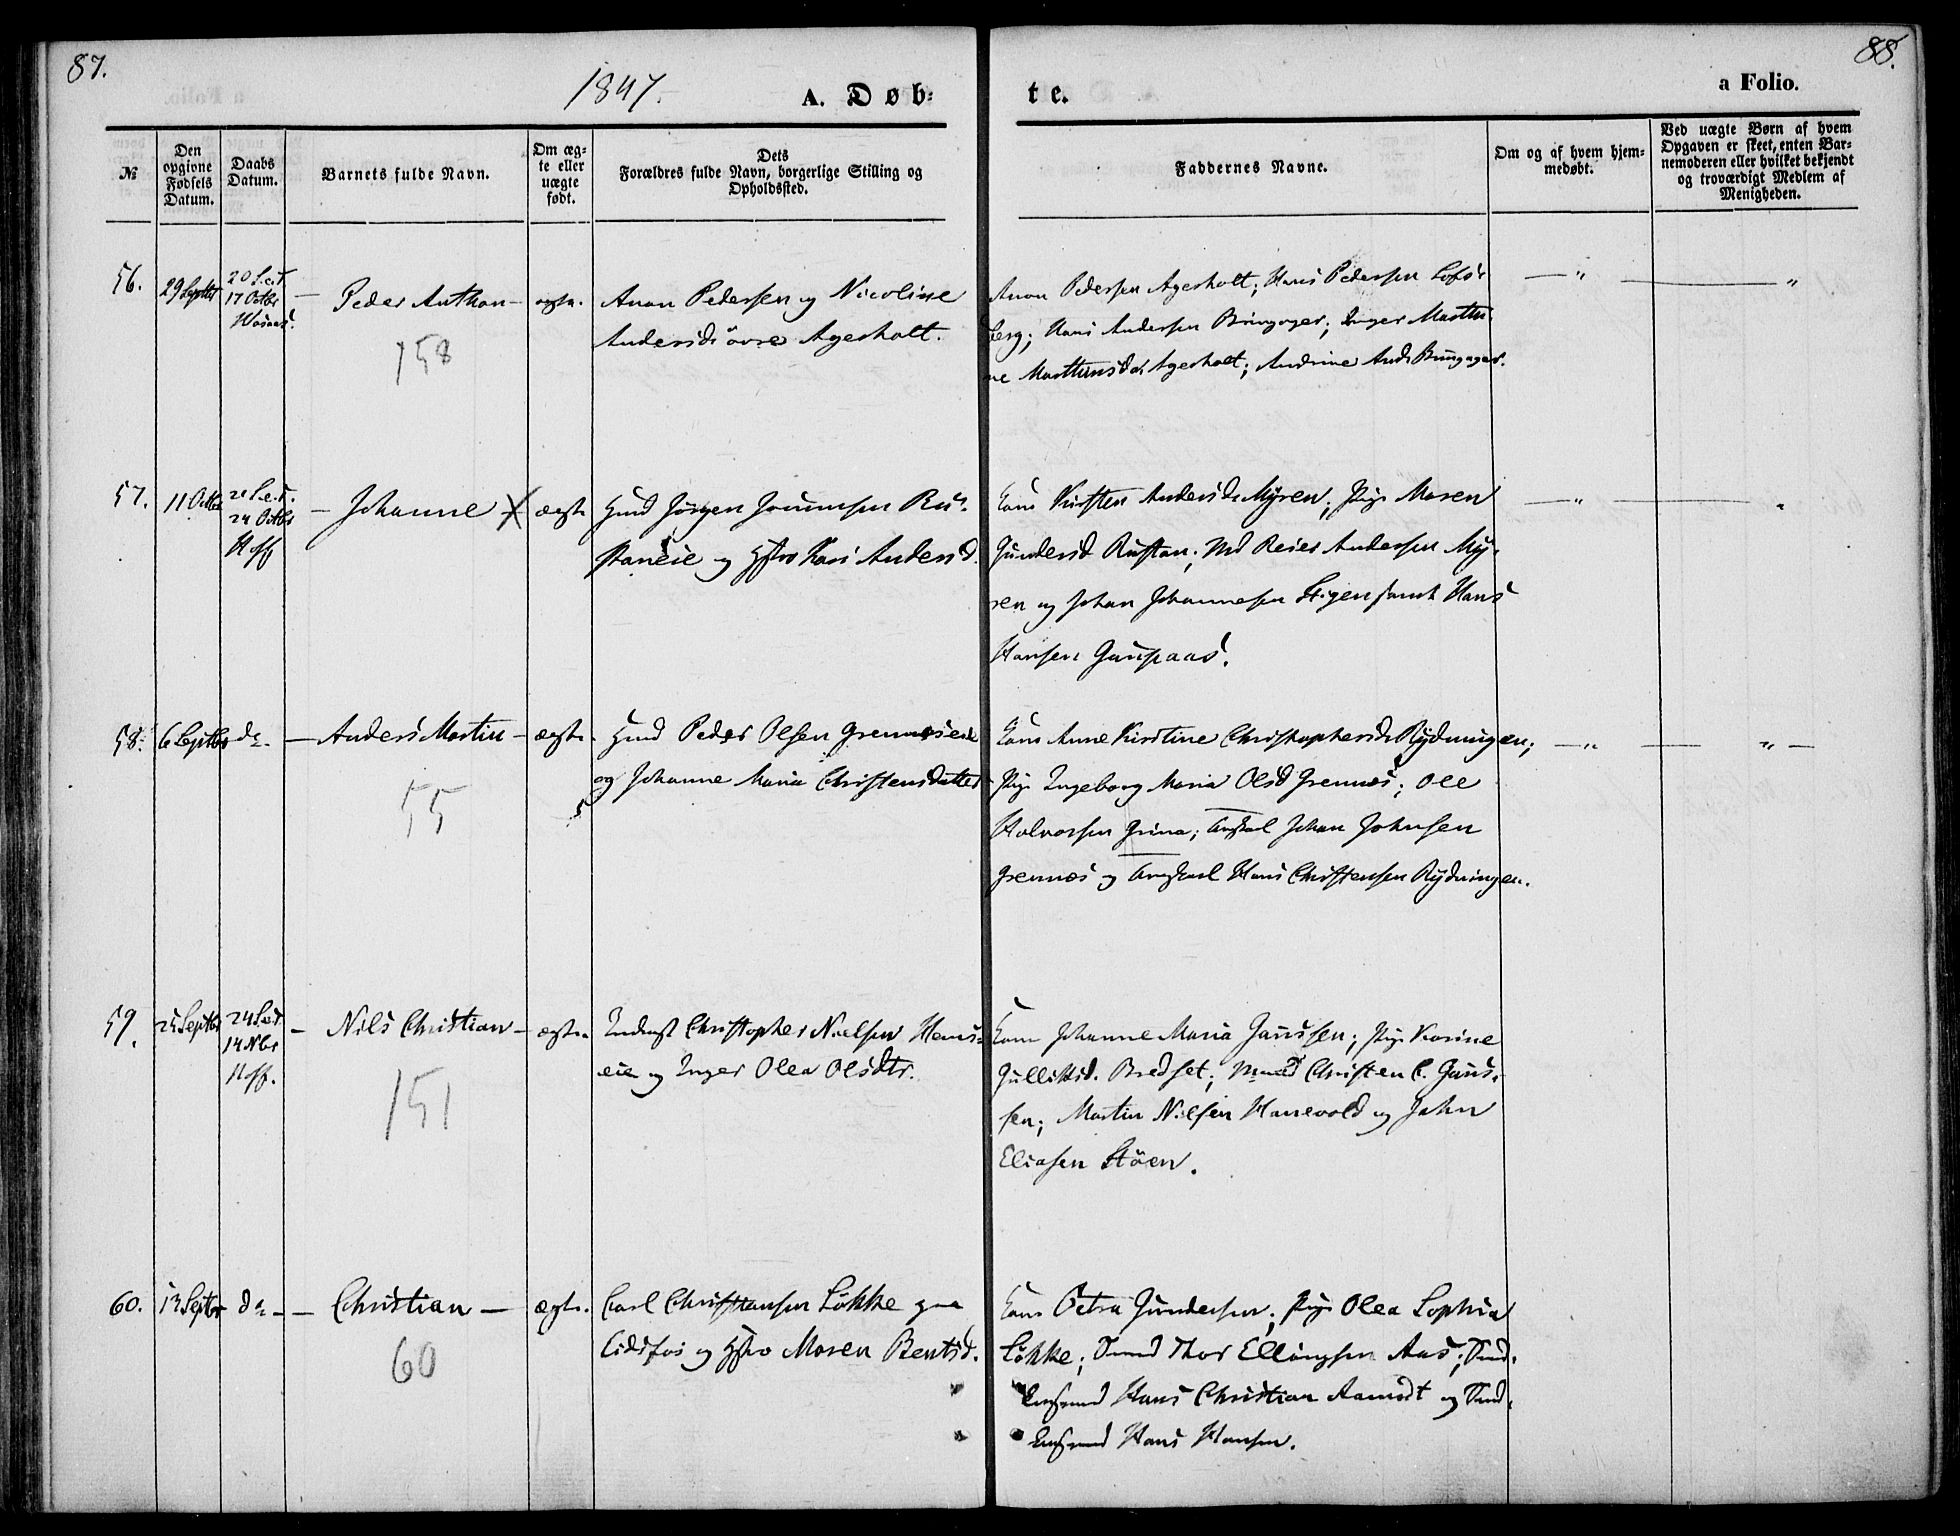 87.
1847.
A. Døb-
№
Den opgivne Fødsels Datum.
Daabs Datum.
Barnets fulde Navn.
Om æg-te eller uægte født.
Dets
Forældres fulde Navn, borgerlige Stilling og
Opholdssted.
56.
29 Septbr
20 S.e.T.
17 Octbr
— Peder Anthon —
ægte.
Anon Pedersen og Nicoline
Andersdr øvre Agerholt.
158
57.
11 Octbr
21 S.e.T.
24 Octbr
Hoff
— Johanne
ægte
Hmd Jörgen
Ru-
staneie og Hstro Kari Andersd.
58.
6 Septbr
do.
— Anders Martin —
ægte.
Hmd Peder Olsen Grennæseie
og Johanne Maria Christensdatter
55
59.
25 Septbr
24 S.e.T.
14 Nbr
Hoff.
— Nils Christian —
ægte.
Inderst Christopher Nielsen Hems-
eie og Inger Olea Olsdtr.
151
60.
13 Septbr
do —
— Christian —
ægte.
Carl Christiansen Lökke paa
Eidsfos og Hstro Maren Bentsd.
60
88.
te.
a Folio.
Faddernes Navne.
Om og af hvem hjem-
medøbt.
Ved uægte Børn af hvem
Opgaven er skeet, enten Bar-
nemoderen eller hvilket bekjendt
og troværdigt Medlem af
Menigheden.
Anon Pedersen Agerholt; Hans Pedersen Lofs-
berg; Hans Andersen Bringager; Inger Marthi-
ne Marthinsdr Agerholt; Andrine Andr Bringager.
Kone Kirsten Andersdr Myren; Pige Maren
Gundersd Rustan; Md Reier Andersen My-
ren og Johan Johannesen Stigen samt Hans
Hansen Gaupaas.
Kone Anne Kirstine Christophersdr Rydningen;
Pige Ingeborg Maria Olsd Grennæs; Ole
Halvorsen Grina; Ungkarl Johan Johnsen
Grennæs og Ungkarl Hans Christensen Rydningen.
Kone Johanne Maria Janssen; Pige Karine
Gulliksd. Bredset; Mænd Christen C. Jans-
sen; Martin Nilsen Hanevold og John
Eliasen Stöen.
Kone Petra Gundersen; Pige Olea Sophia
Lökke; Smed Thor Ellingsen Aas;
Hans Christian Aamodt og
Hans Hansen.